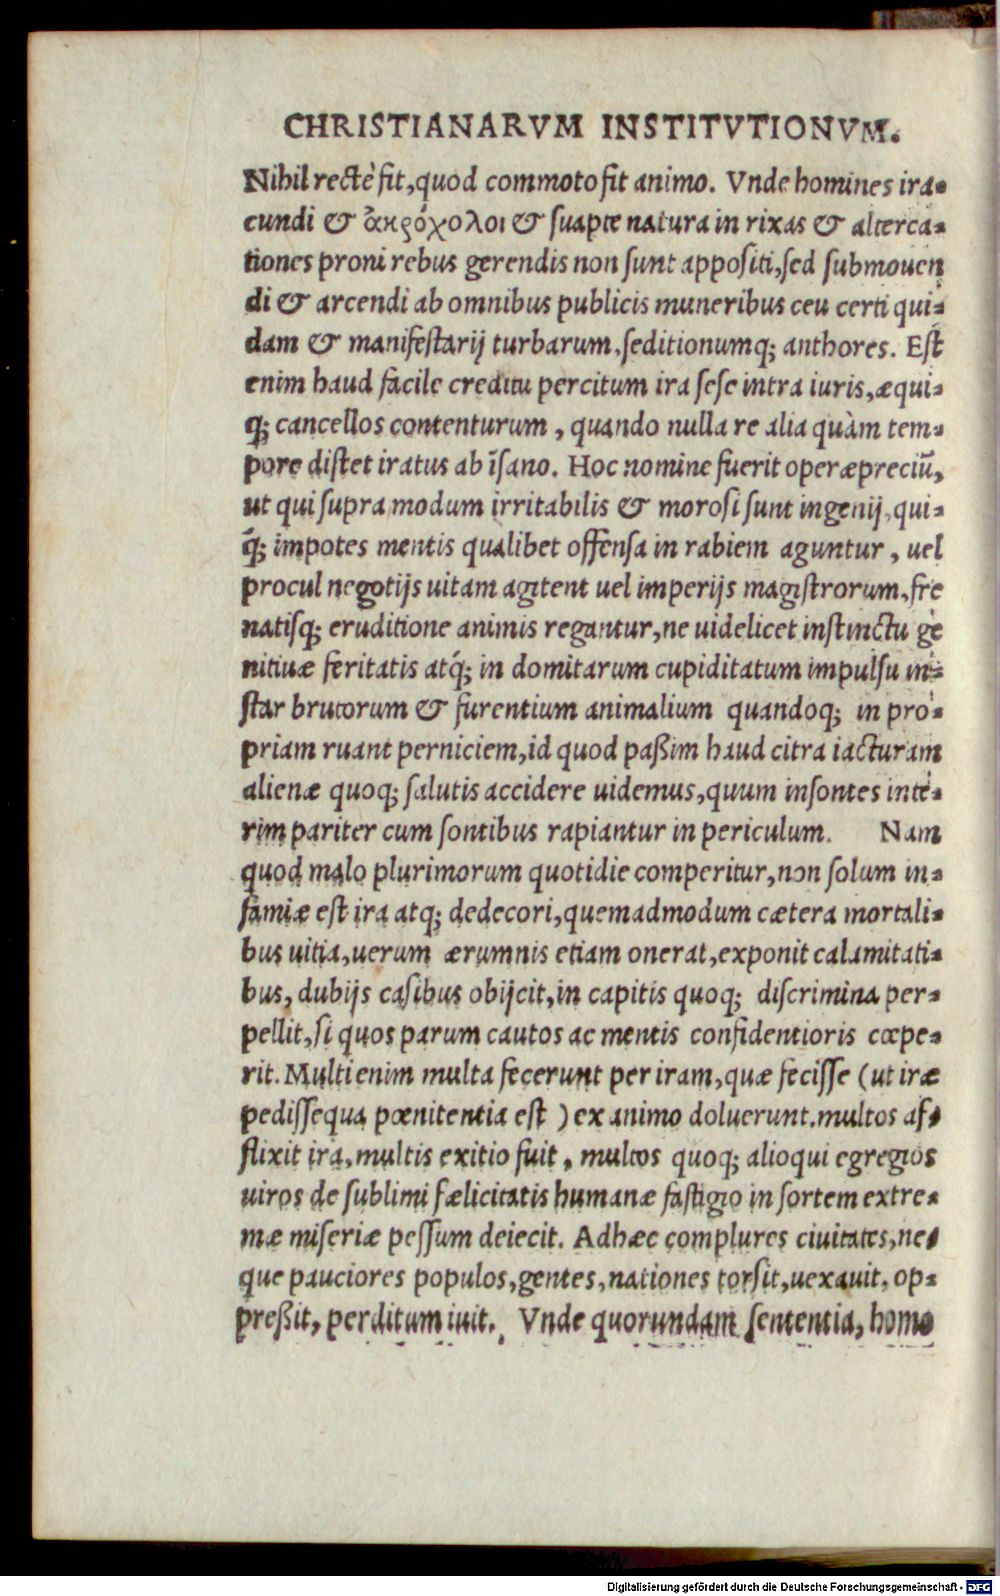 CHRISTIANARVM INSTITVTIONVM.
Nihil rectè fit, quod commoto fit animo. Vnde homines ira-
cundi & ἀκρόχολοι & suapte natura in rixas & alterca-
tiones proni rebus gerendis non sunt appositi, sed submouen
di & arcendi ab omnibus publicis muneribus ceu certi qui-
dam & manifestarij turbarum, seditionumq; anthores. Est
enim haud facile creditu percitum ira sese intra iuris, æqui-
q; cancellos contenturum, quando nulla re alia quàm tem-
pore distet iratus ab īsano. Hoc nomine fuerit operæpreciū,
ut qui supra modum irritabilis & morosi sunt ingenij, qui-
q́; impotes mentis qualibet offensa in rabiem aguntur, uel
procul negotijs uitam agitent uel imperijs magistrorum, fre
natisq; eruditione animis regantur, ne uidelicet instinctu ge
nitiuæ feritatis atq́; in domitarum cupiditatum impulsu in-
star brutorum & furentium animalium quandoq; in pro-
priam ruant perniciem, id quod paßim haud citra iacturam
alienæ quoq; salutis accidere uidemus, quum insontes inte-
rim pariter cum sontibus rapiantur in periculum. Nam
quod malo plurimorum quotidie comperitur, non solum in-
famiæ est ira atq; dedecori, quemadmodum cætera mortali-
bus uitia, uerum ærumnis etiam onerat, exponit calamitati-
bus, dubijs casibus obijcit, in capitis quoq; discrimina per-
pellit, si quos parum cautos ac mentis confidentioris cœpe-
rit. Multi enim multa fecerunt per iram, quæ fecisse (ut iræ
pedissequa pœnitentia est) ex animo doluerunt. multos af-
flixit ira, multis exitio fuit, multos quoq; alioqui egregios
uiros de sublimi fælicitatis humanæ fastigio in sortem extre-
mæ miseriæ pessum deiecit. Adhæc complures ciuitates, ne-
que pauciores populos, gentes, nationes torsit, uexauit, op-
preßit, perditum iuit. Vnde quorundam sententia, homo
Digitalisierung gefördert durch die Deutsche Forschungsgemeinschaft - DFG